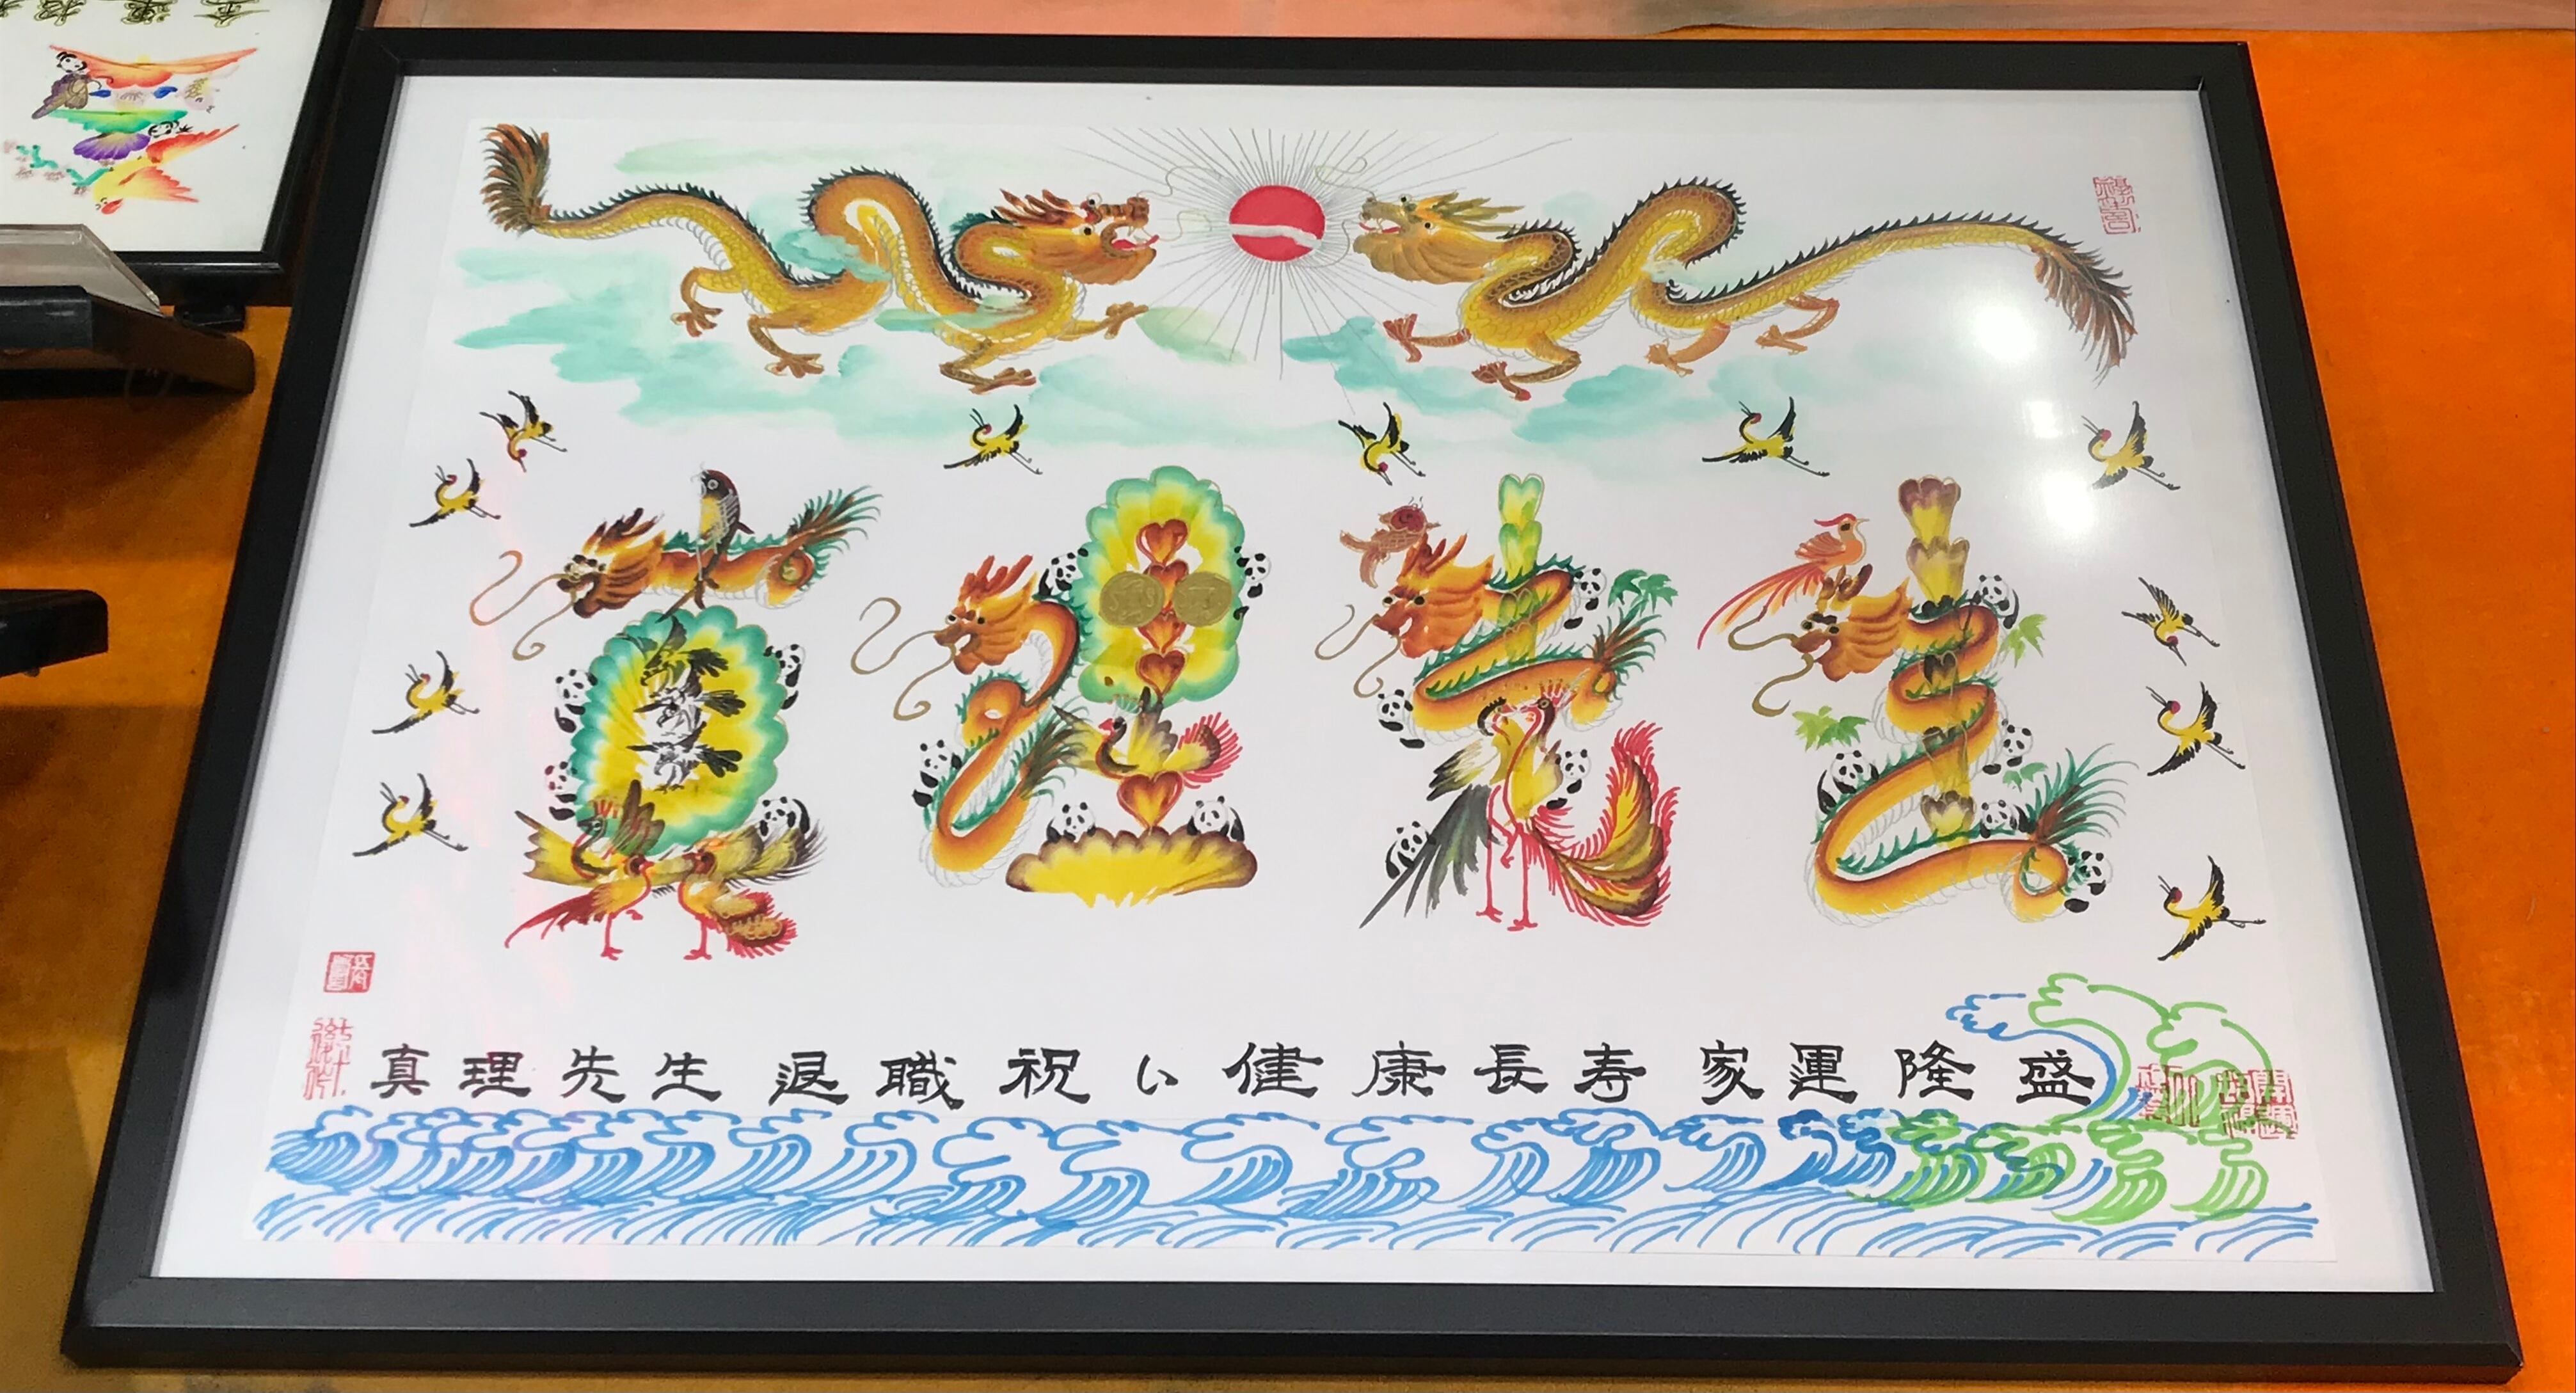 真理先生
真理先生 退職祝い 健康長寿 家運隆盛